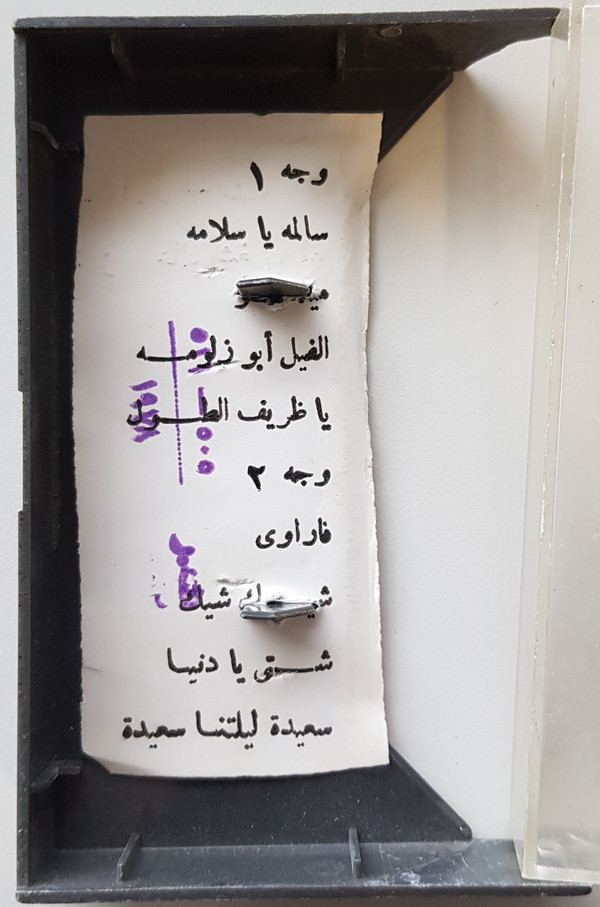 وجه ١
سالمه يا سلامه
الفيل أبو زلومـــه
يا ظريف الطـــول
وجه ٢
فاراوى
شيك
شـــتى يا دنيـا
سعيدة ليلتنـا سعيدة